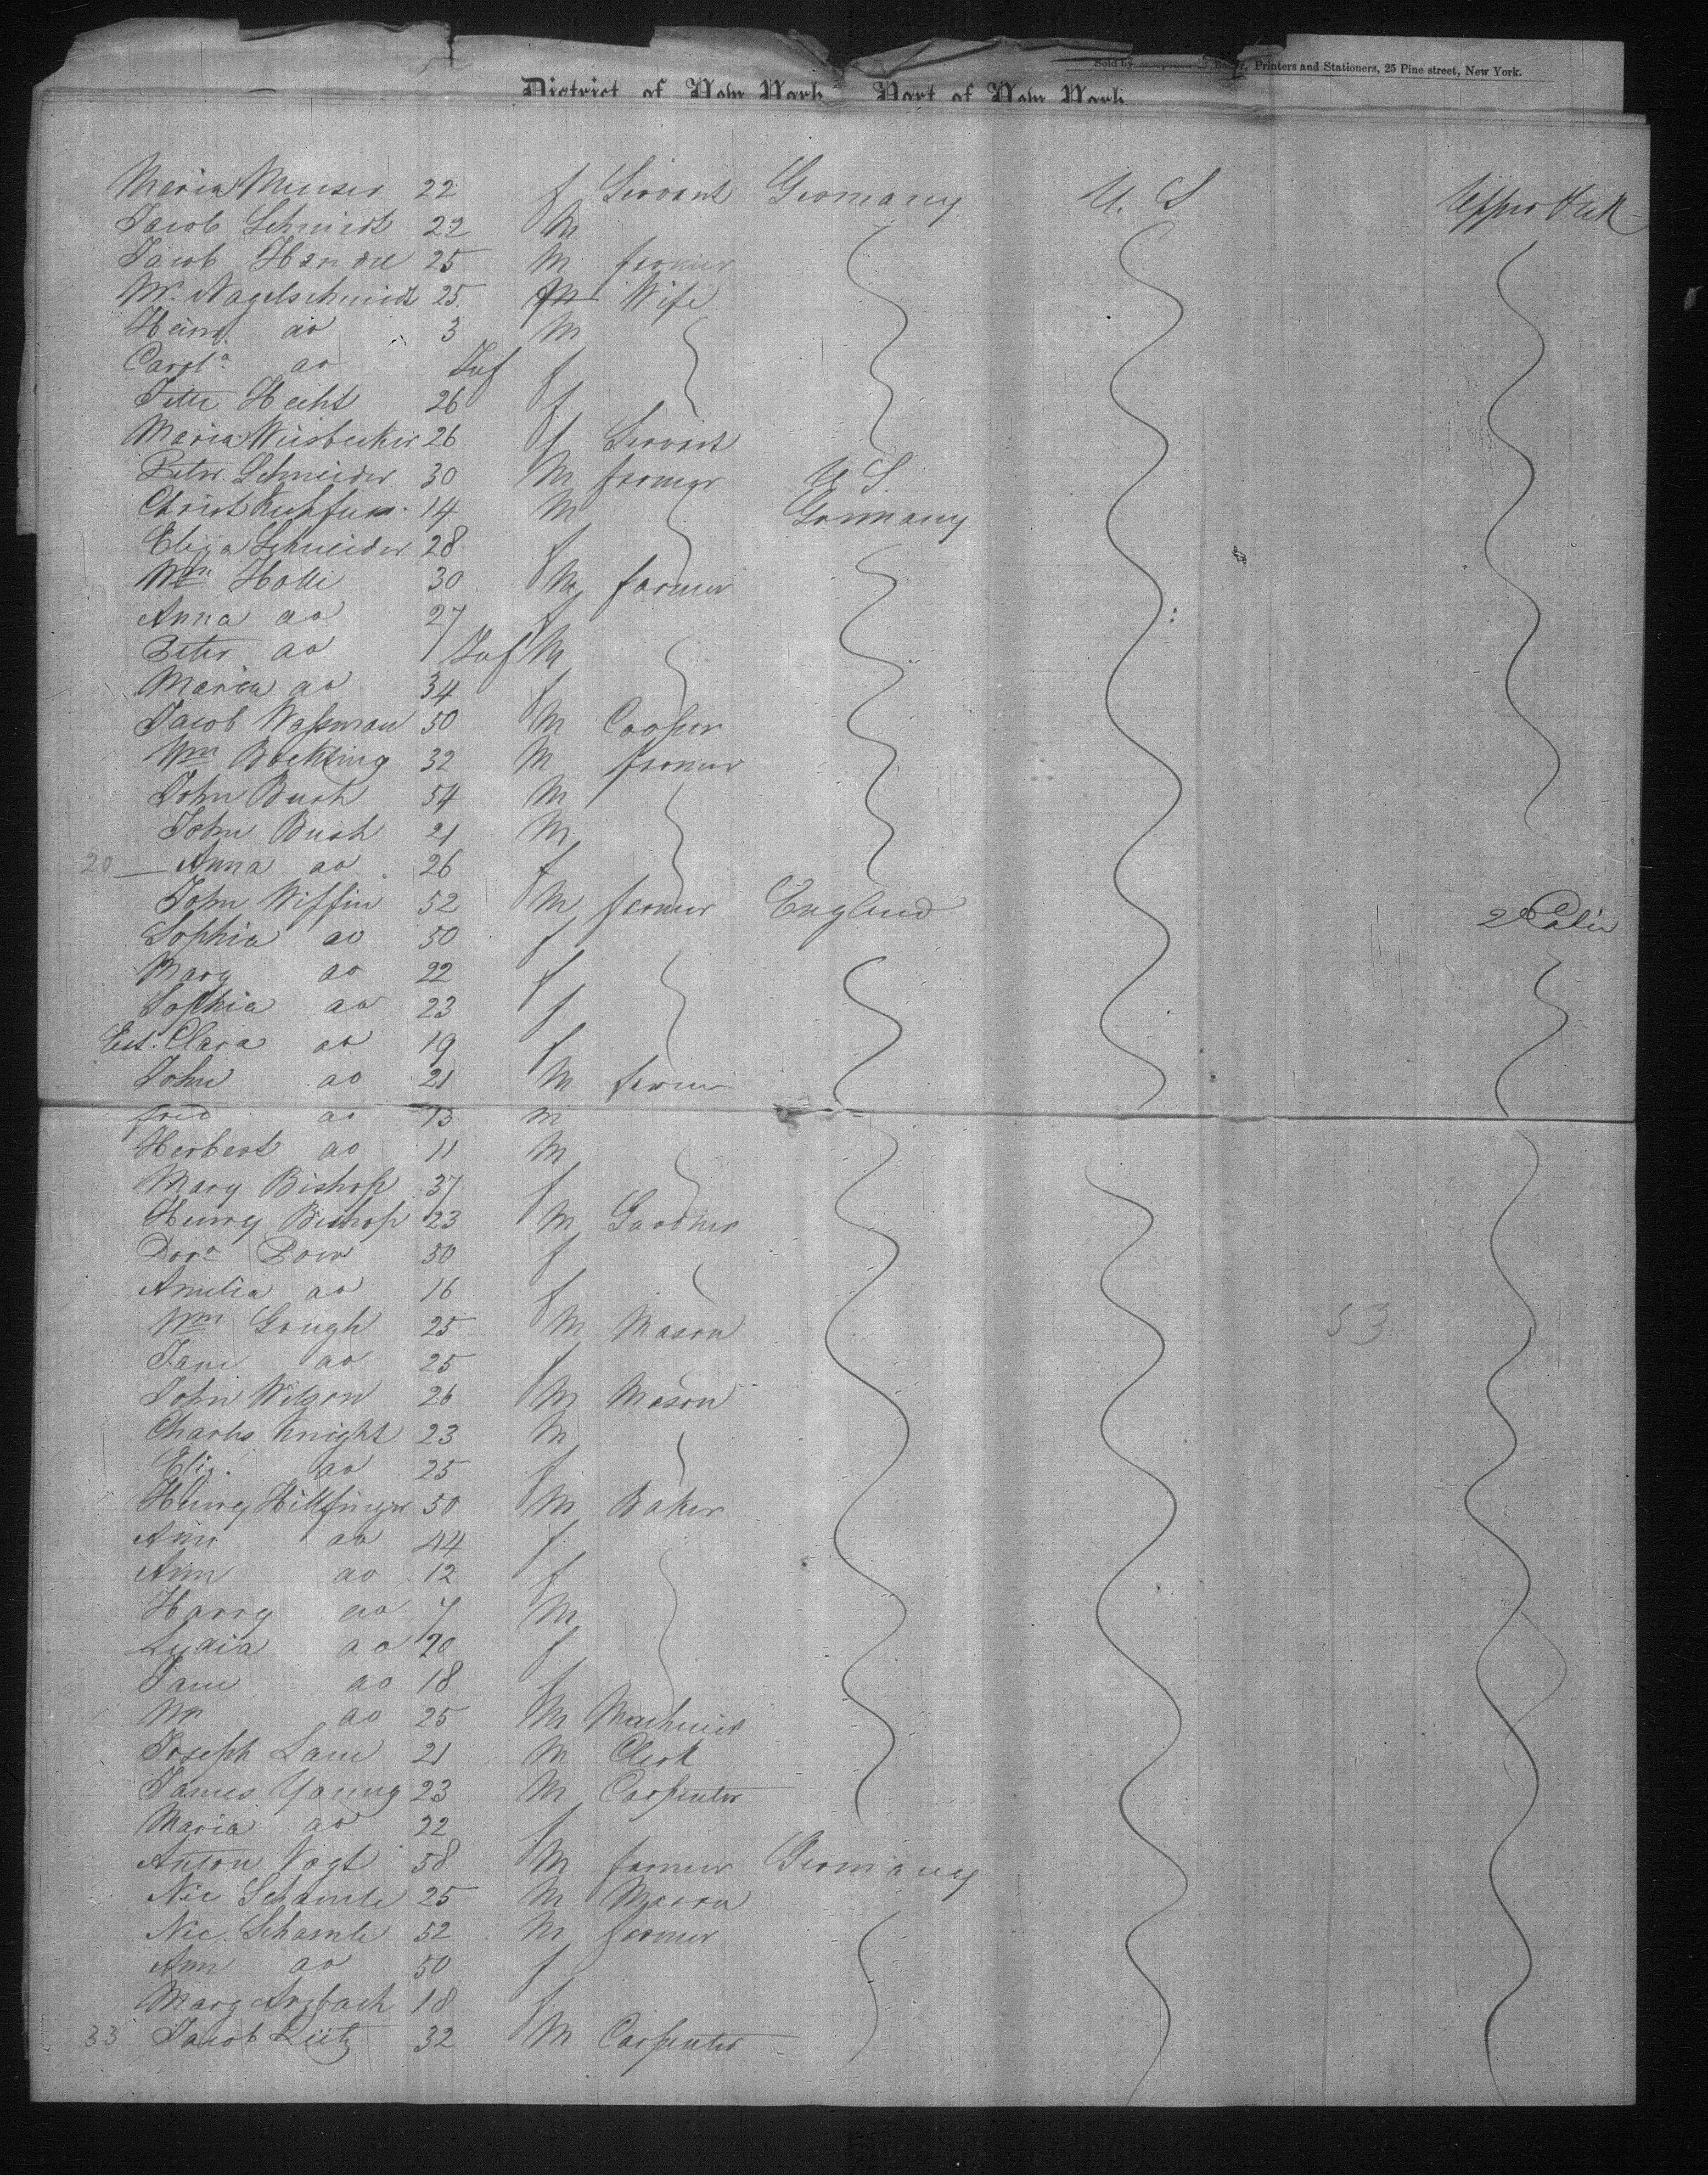 Printers and Stationers, 25 Pine street, New York.
District of New York Port of New York
Maria Meuser 22 f Servant Germany U. S Upper Deck
Jacob Schmidt 22 M
Jacob Handel 25 M farmer
M. Nagelschmidt 25 Wife
Heinr. do 3 M
Carola do Inf f
Jette Hecht 26 f
Maria Wiesbecker 26 f Servant
Peter Schneider 30 M farmer U S.
Christ 14 M Germany
Eliza Schneider 28 f
Wm Holli 30 M farmer
Anna do 27 f
Peter do Inf M
Maria do 34 f
Jacob Wassman 50 M Cooper
Wm Böckling 32 M farmer
John Bush 54 M
John Bush 21 M
20 Anna do 26 f
John Wiffin 52 M farmer England 2 Cabin
Sophia do 50 f
Mary do 22 f
Sophia do 23 f
Clara do 19 f
John do 21 M farmer
fred do 13 m
Herbert do 11 M
Mary Bishop 37 f
Henry Bishop 23 M Gardner
Dora 50 f
Amelia do 16 f
Wm Gough 25 M Mason 53
Jane do 25 f
John Wilson 26 M Mason
Charles Knight 23 M
Eliz. do 25 f
Henry Hillfinger 50 M Baker
Ann do 44 f
Ann do 12 f
Harry do 7 M
Lydia do 20 f
Jane do 18 f
Wm do 25 M Machinist
Joseph Lane 21 M Clerk
James Young 23 M Carpenter
Maria do 22 f
Anton Vogt 58 M farmer Germany
Nic Schamle 25 M Mason
Nic. Schamle 52 M farmer
Ann do 50 f
Marg Arzbach 18 f
33 Jacob 32 M Carpenter